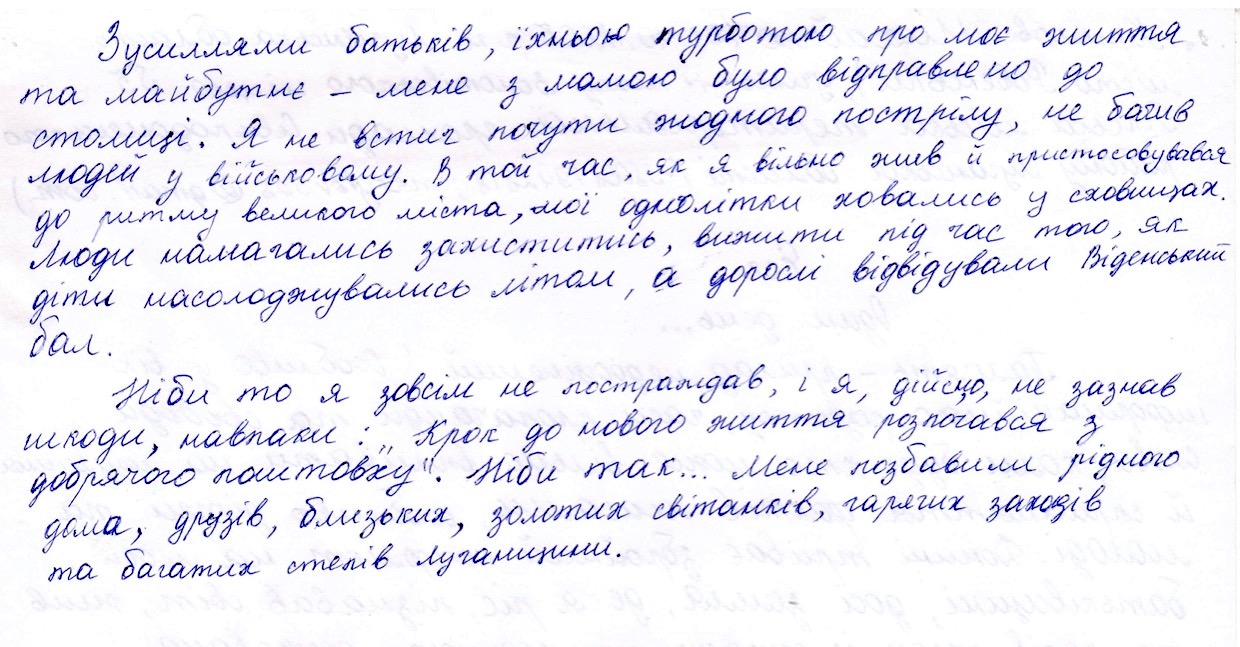 Зусиллями батьків, їхньою турботою про моє життя
та майбутнє – мене з мамою було відправлено до
столиці. Я не встиг почути жодного пострілу, не бачив
людей у військовому. В той час, як я вільно жив й пристосовувався
до ритму великого міста, мої однолітки ховались у сховищах.
Люди намагались захиститись, вижити під час того, як
діти насолоджувались літом, а дорослі відвідували Віденський
бал.
Ніби то я зовсім не постраждав, і я, дійсно, не зазнав
шкоди, навпаки: „Крок до нового життя розпочався з
добрячого поштовху". Ніби так... Мене позбавили рідного
дома, друзів, близьких, золотих світанків, гарячих заходів
та багатих степів Луганщини.